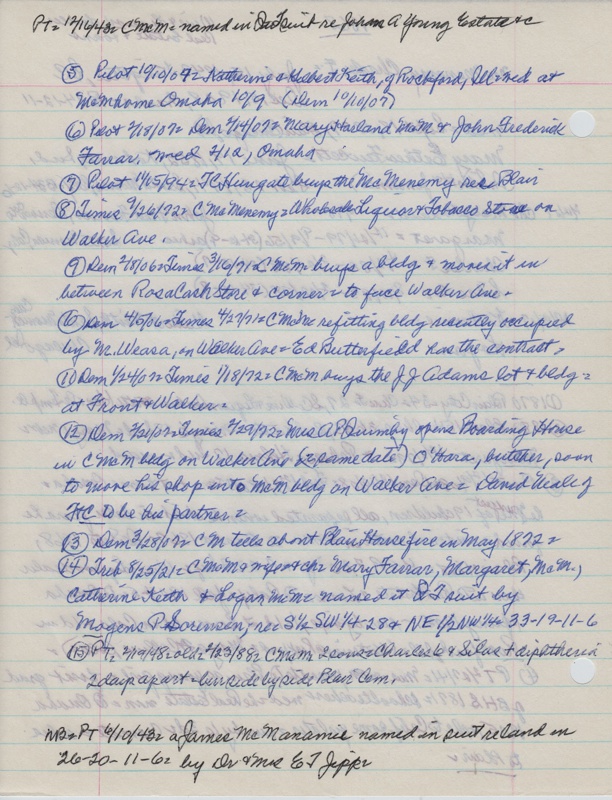 PT= 12/16/43= C McM= named in QT suit re Johan A Young Estate &c
⑤ Pilot 10/10/07= Katherine & Hobert Keith, of Rockford, Ill= wed at
McM home Omaha 10/9 (Dem 10/10/07)
⑥ Pilot 2/18/07= Dem 2/14/07= Mary Harland McM & John Frederick
Farrar, wed 2/12, Omaha
⑦ Pilot 11/15/94= TC Hungate buys the McMenemy res= Blair
⑧ Times 9/26/72= C McMenemy= Wholesale Liquor & Tobacco Store on
Walker Ave
⑨ Dem 2/8/06= Times 3/16/71= C McM= buys a bldg & moves it in
between Rosa Cash Store & corner= to face Walker Ave=
⑩ Dem 4/5/06= Times 4/27/71= C McM= refitting bldg recently occupied
by Mr. Weasa, on Walker Ave= Ed Butterfield has the contract=
⑪ Dem 1/24/07= Times 7/18/72= C McM buys the J J Adams lot & bldg=
at Front & Walker=
⑫ Dem 2/21/07= Times 8/29/72= Mrs A P Quimby opens Boarding House
in C McM bldg on Walker Ave (& same date) O'Hara, butcher, soon
to move his shop into McM bldg on Walker Ave= David Neale of
HC to be his partner=
⑬ Dem 3/28/07= C M tells about Plain House fire in May 1872=
⑭ Trib 8/25/21= C McM & wife & ch= Mary Farrar, Margaret, McM,
Catherine Keith & Logan McM= named in QT suit by
Mogens P Sorensen, re= S½ SW¼ 28 & NE ½ NW¼= 33-19-11-6
⑮ PT= 2/19/48= old= 2/23/88= C McM= 2 sons= Charles 6 & Silas + diphtheria
2 days apart= bur side by side Blair Cem.
NB= PT 6/10/43= a James McManamie named in suit re land in
26-20-11-6= by Dr & Mrs E T Jipp=